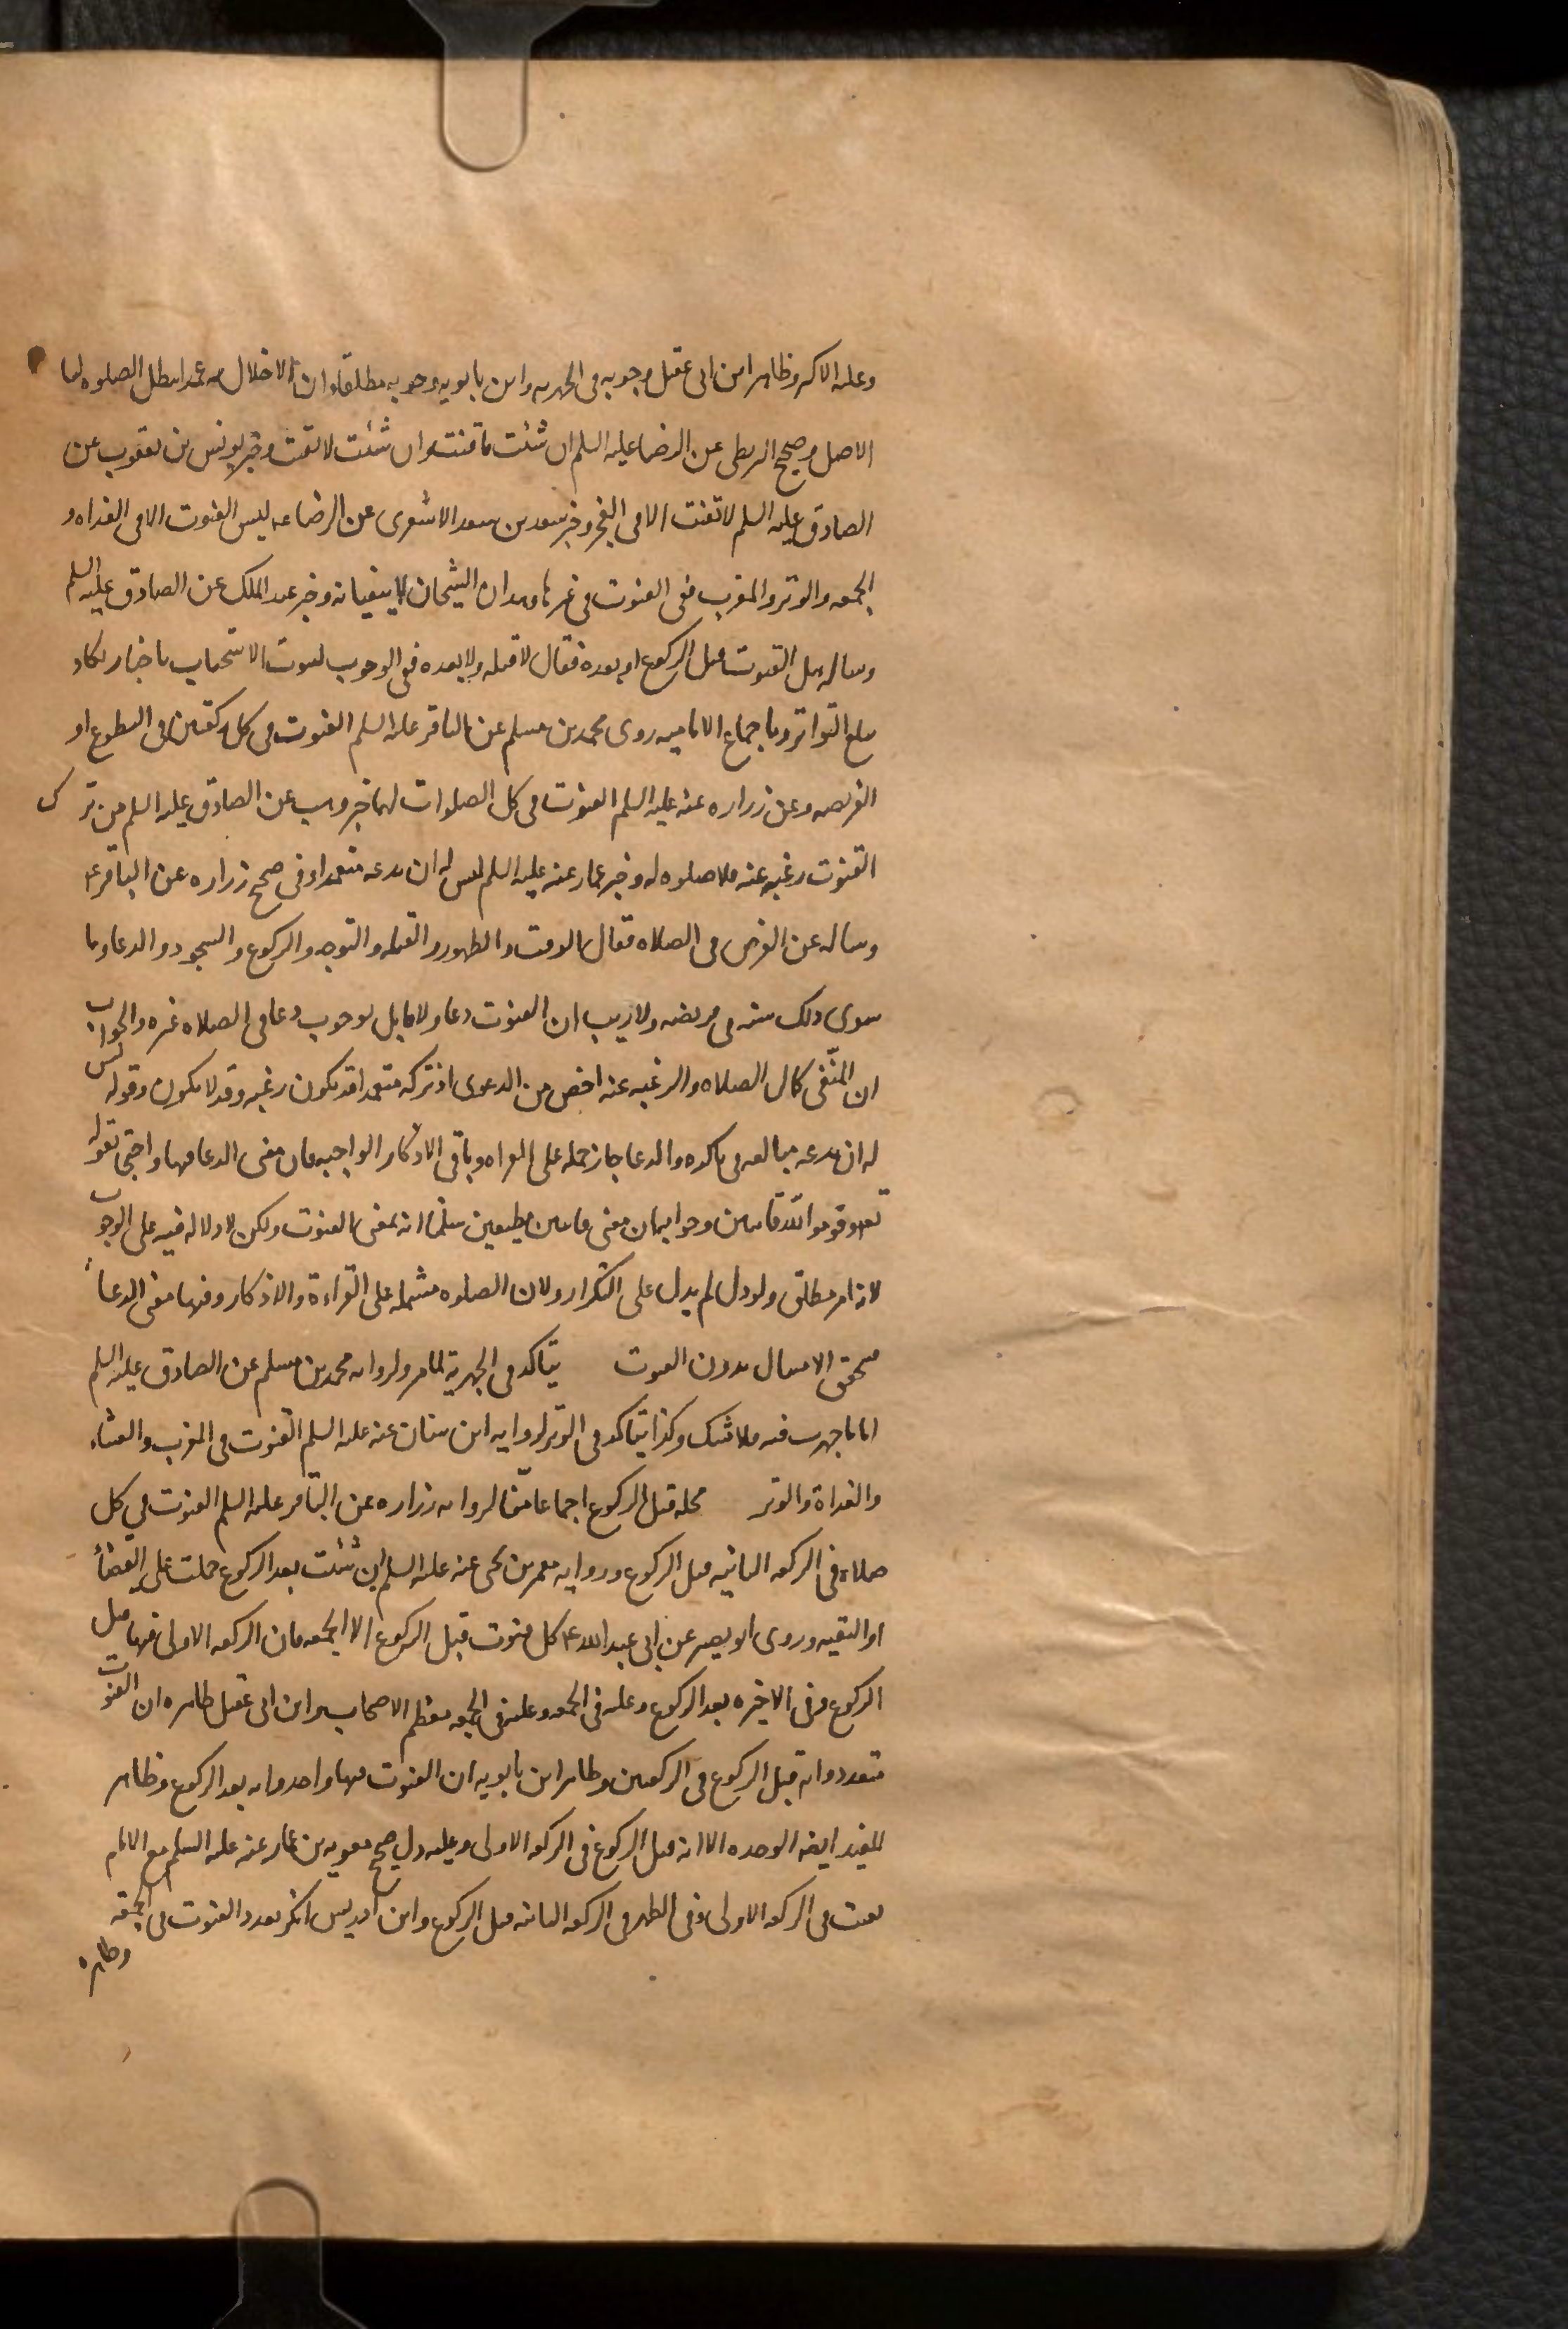 وعليه الاكثر وظاهر ابن ابى عقيل وجوبه فى الجهريه وابن بابويه وجوبه مطلقا وان الاخلال به عمدا يبطل الصلوه لنا
الاصل وصحيح البزنطى عن الرضا عليه السلم ان شئت فاقنت وان شئت لا تقنت وخبر يونس بن يعقوب عن
الصادق عليه السلم لا تقنت الا فى الفجر وخبر سعد بن سعد الاشعرى عن الرضا عه ليس القنوت الا فى الغداه و
الجمعه والوتر والمغرب فنفى القنوت فى غيرها وهذان الشيخان لا ينفيانه وخبر عبد الملك عن الصادق عليه السلم
وساله هل القنوت قبل الركوع او بعده فقال لا قبله ولا بعده فنفى الوجوب لثبوت الاستحباب باخبار تكاد
تبلغ التواتر وباجماع الاماميه روى محمد بن مسلم عن الباقر عليه السلم القنوت فى كل ركعتين فى التطوع او
الفريضه وعن زراره عنه عليه السلم القنوت فى كل الصلوات لهما خبر وهب عن الصادق عليه السلم من ترك
القنوت رغبه عنه فلا صلوه له وخبر عمار عنه عليه السلم ليس له ان يدعه متعمدا وفى صحيح زراره عن الباقر ع
وساله عن الفرض فى الصلاه فقال الوقت والطهور والقبله والتوجه والركوع والسجود والدعا وما
سوى ذلك سنه فى فريضه ولا ريب ان القنوت دعا ولا قايل بوجوب دعا فى الصلاه غيره والجواب
ان المنفى كمال الصلاه والرغبه عنه اخص من الدعوى اذ تركه متعمدا قد يكون رغبه وقد لا يكون وقوله ليس
له ان يدعه مبالغه فى تاكده والدعا جاز حمله على القراه وباقى الاذكار الواجبه فان معنى الدعا فيها واحتج بقوله
تعه وقوموا لله قانتين وجوابه ان معنى قانتين مطيعين سلمنا انه بمعنى القنوت ولكن لا دلاله فيه على الوجوب
لانه امر مطلق ولو دل لم يدل على التكرار ولان الصلوه مشتمله على القراءة والاذكار وفيها معنى الدعاء
فيتحقق الامتثال بدون القنوت يتاكد فى الجهرية لما مر ولروايه محمد بن مسلم عن الصادق عليه السلم
اما ما جهرت فيه فلا شك وكذا يتاكد فى الوتر لروايه ابن سنان عنه عليه السلم القنوت فى المغرب والعشاء
والغداة والوتر محله قبل الركوع اجماعا منّا لروايه زراره عن الباقر عليه السلم القنوت فى كل
صلاه فى الركعه الثانيه قبل الركوع وروايه معمر بن يحيى عنه عليه السلم ان شئت بعد الركوع حملت على القضاء
او التقيه وروى ابو بصير عن ابى عبد الله ع كل قنوت قبل الركوع الا الجمعه فان الركعه الاولى فيها قبل
الركوع وفى الاخيره بعد الركوع وعليه فى الجمعه وعليه فى الجمعه معظم الاصحاب وابن ابى عقيل ظاهره ان القنوت
متعدد وانه قبل الركوع فى الركعتين وظاهر ابن بابويه ان القنوت فيها واحد وانه بعد الركوع وظاهر
المفيد ايضه الوحده الا انه قبل الركوع فى الركعه الاولى وعليه دل صحيح معويه بن عمار عنه عليه السلم مع الامام
يقنت فى الركعه الاولى وفى الظهر فى الركعه الثانيه قبل الركوع وابن ادريس انكر تعدد القنوت فى الجمعه
وظاهره